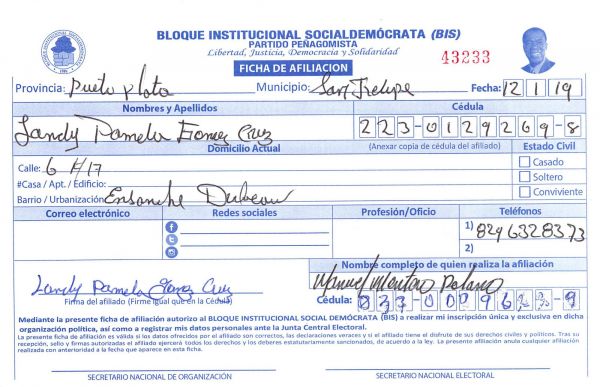 BLOQUE INSTITUCIONAL SOCIALDEMÓCRATA (BIS)
PARTIDO PEÑAGOMISTA
Libertad, Justicia, Democracia y Solidaridad
43233
FICHA DE AFILIACION
Provincia: Puerto Plata Municipio: San Felipe Fecha: 12/1/19
Nombres y Apellidos Cédula
Landy Pamela Gomez Cruz 223-0129269-8
Domicilio Actual (Anexar copia de cédula del afiliado) Estado Civil
Calle: 6 # 17 Casado
#Casa / Apt. / Edificio: Soltero
Barrio / Urbanización: Ensanche Dubeau Conviviente
Correo electrónico Redes sociales Profesión/Oficio Teléfonos
1) 8296328373
2)
Nombre completo de quien realiza la afiliación
Landy Pamela Gomez Cruz Manuel
Firma del afiliado (Firme igual que en la Cédula) Cédula:
Mediante la presente ficha de afiliación autorizo al BLOQUE INSTITUCIONAL SOCIAL DEMÓCRATA (BIS) a realizar mi inscripción única y exclusiva en dicha
organización política, así como a registrar mis datos personales ante la Junta Central Electoral.
La presente ficha de afiliación es válida si los datos ofrecidos por el afiliado son correctos, las declaraciones veraces y si el afiliado tiene el disfrute de sus derechos civiles y políticos. Tras su
recepción, sello y firmas autorizadas el afiliado ejercerá todos los derechos y los deberes estatutariamente sancionados, de acuerdo a la ley. La presente afiliación anula cualquier afiliación
realizada con anterioridad a la fecha que aparece en esta ficha.
SECRETARIO NACIONAL DE ORGANIZACIÓN SECRETARIO NACIONAL ELECTORAL